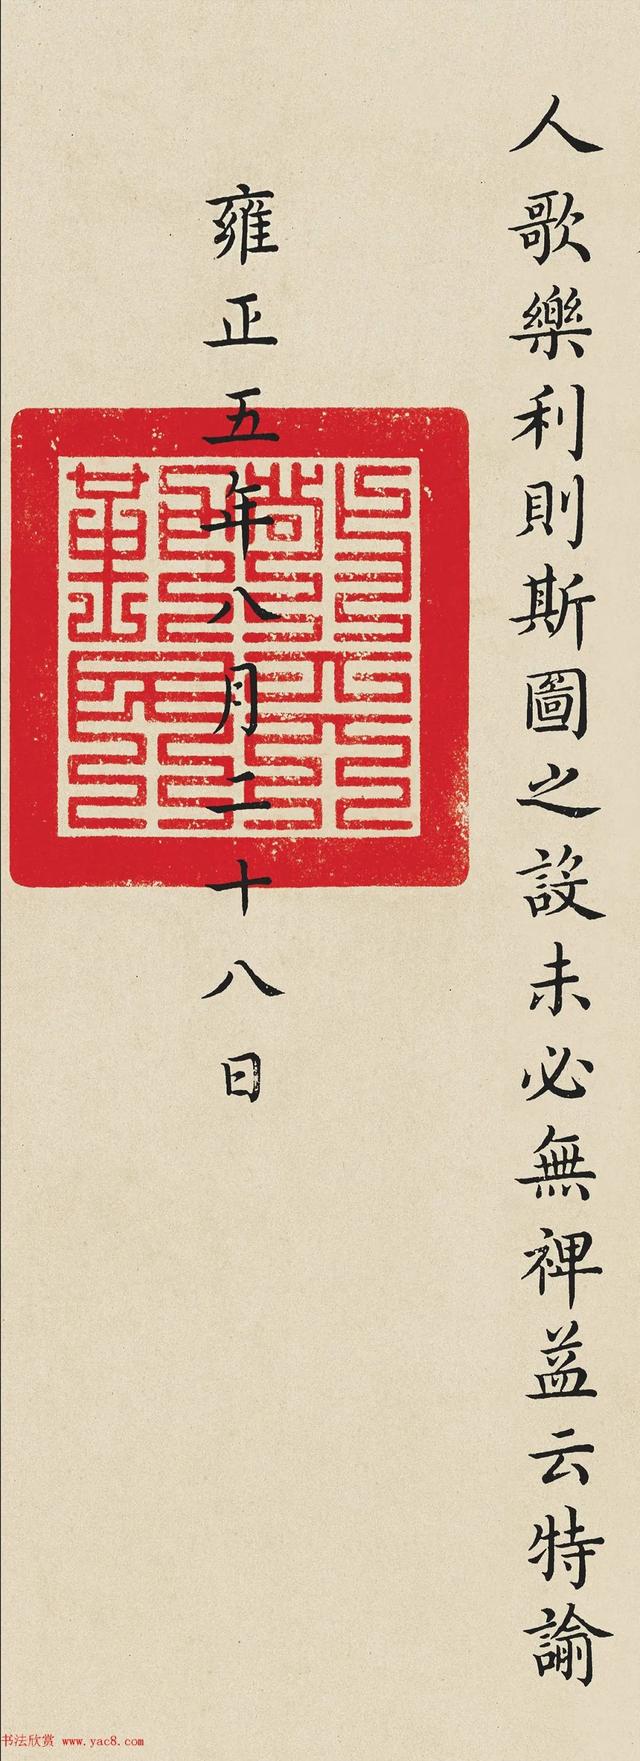 人歌樂利則斯圖之設未必無裨益云特諭
雍正五年八月二十八日
书法欣赏 www.yac8.com